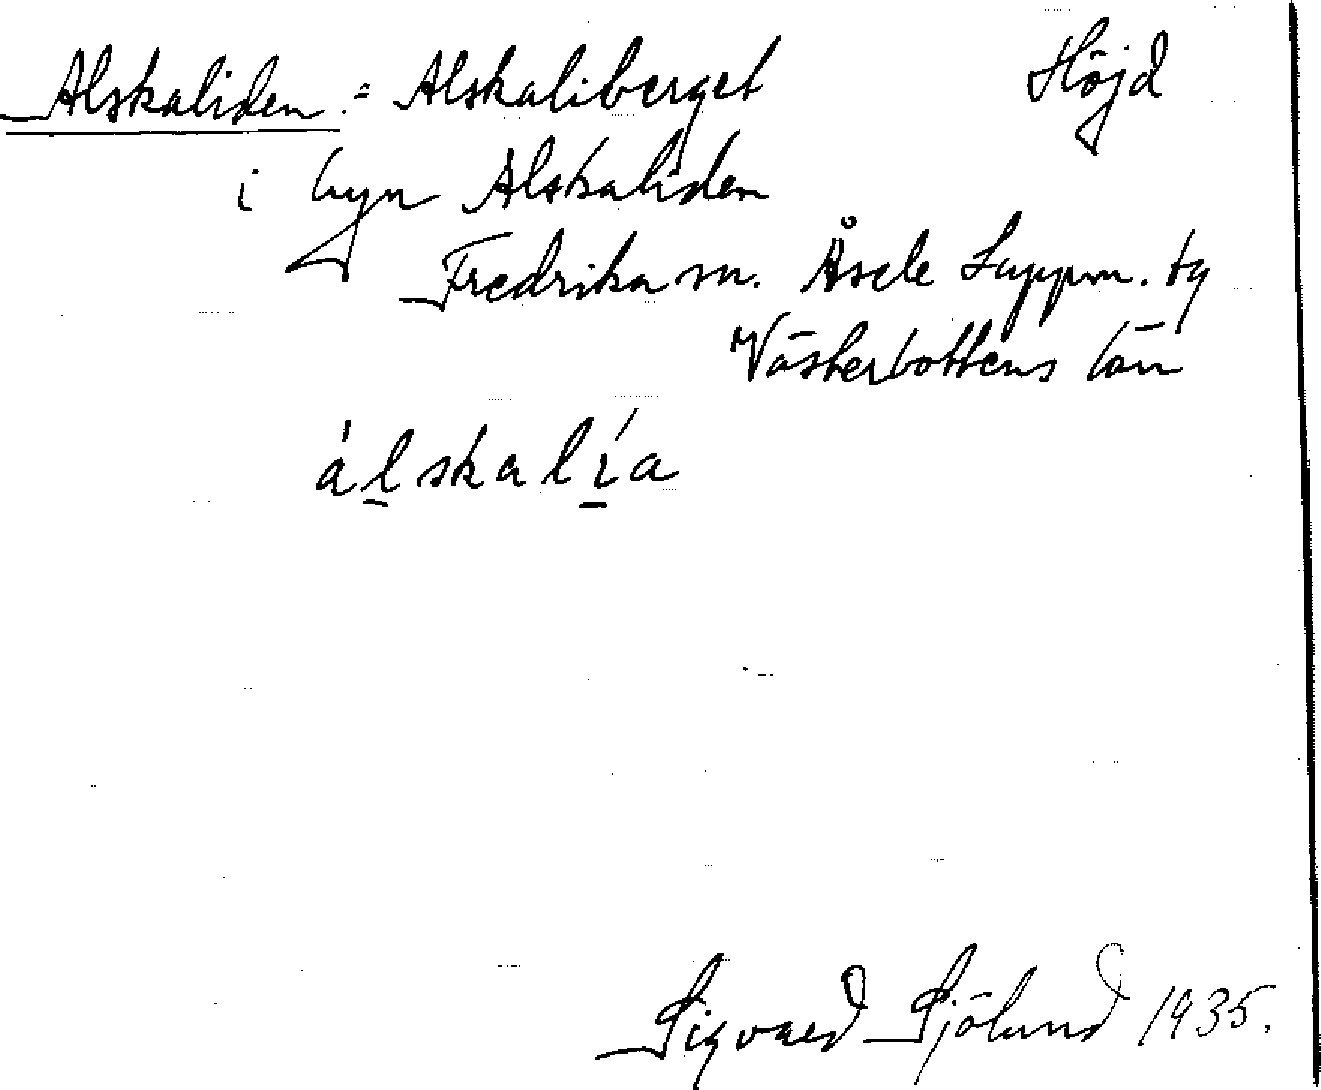 Alskaliden = Alskaliberget Höjd
i byn Alskaliden
Fredrika sn. Åsele Lappm. tg
Västerbottens län
álskalía
Sigvard Sjölund 1935.